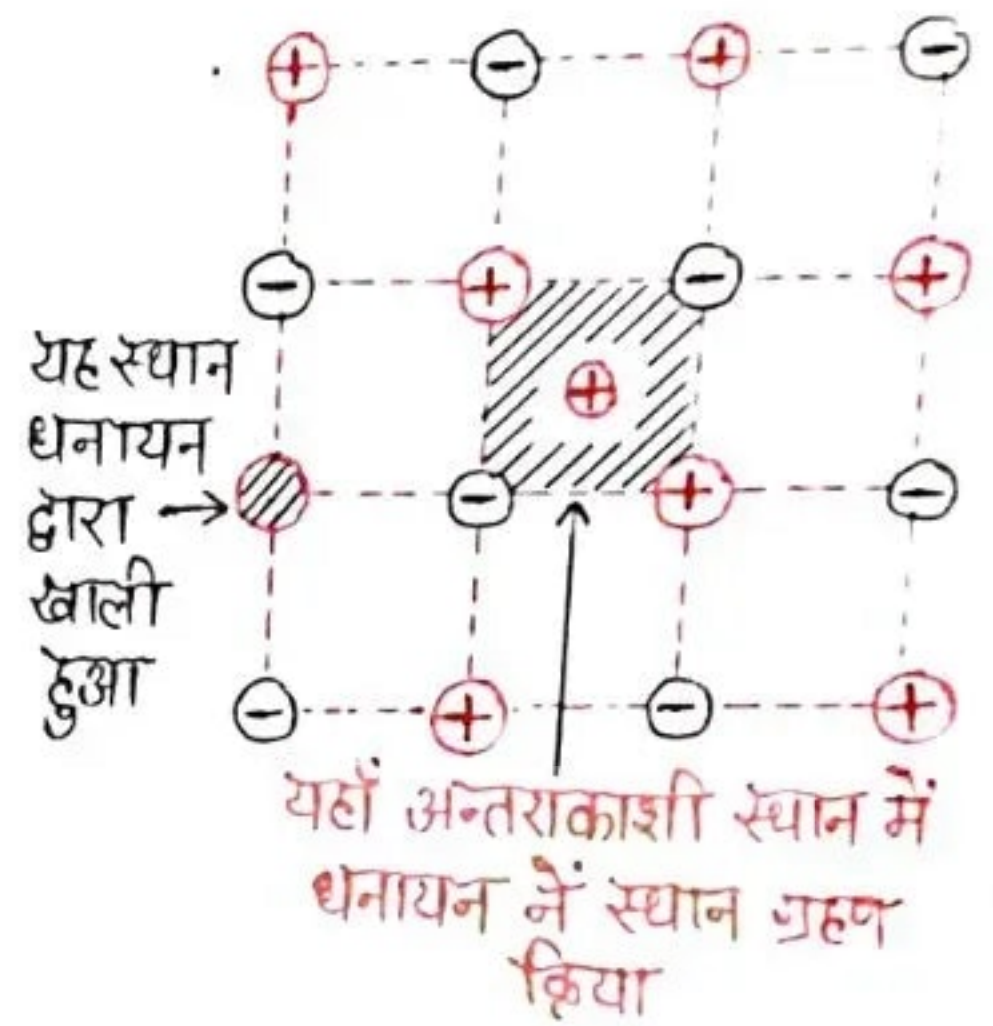 यह स्थान
धनायन
द्वारा
खाली
हुआ
यहाँ अन्तराकाशी स्थान में
धनायन नें स्थान ग्रहण
किया